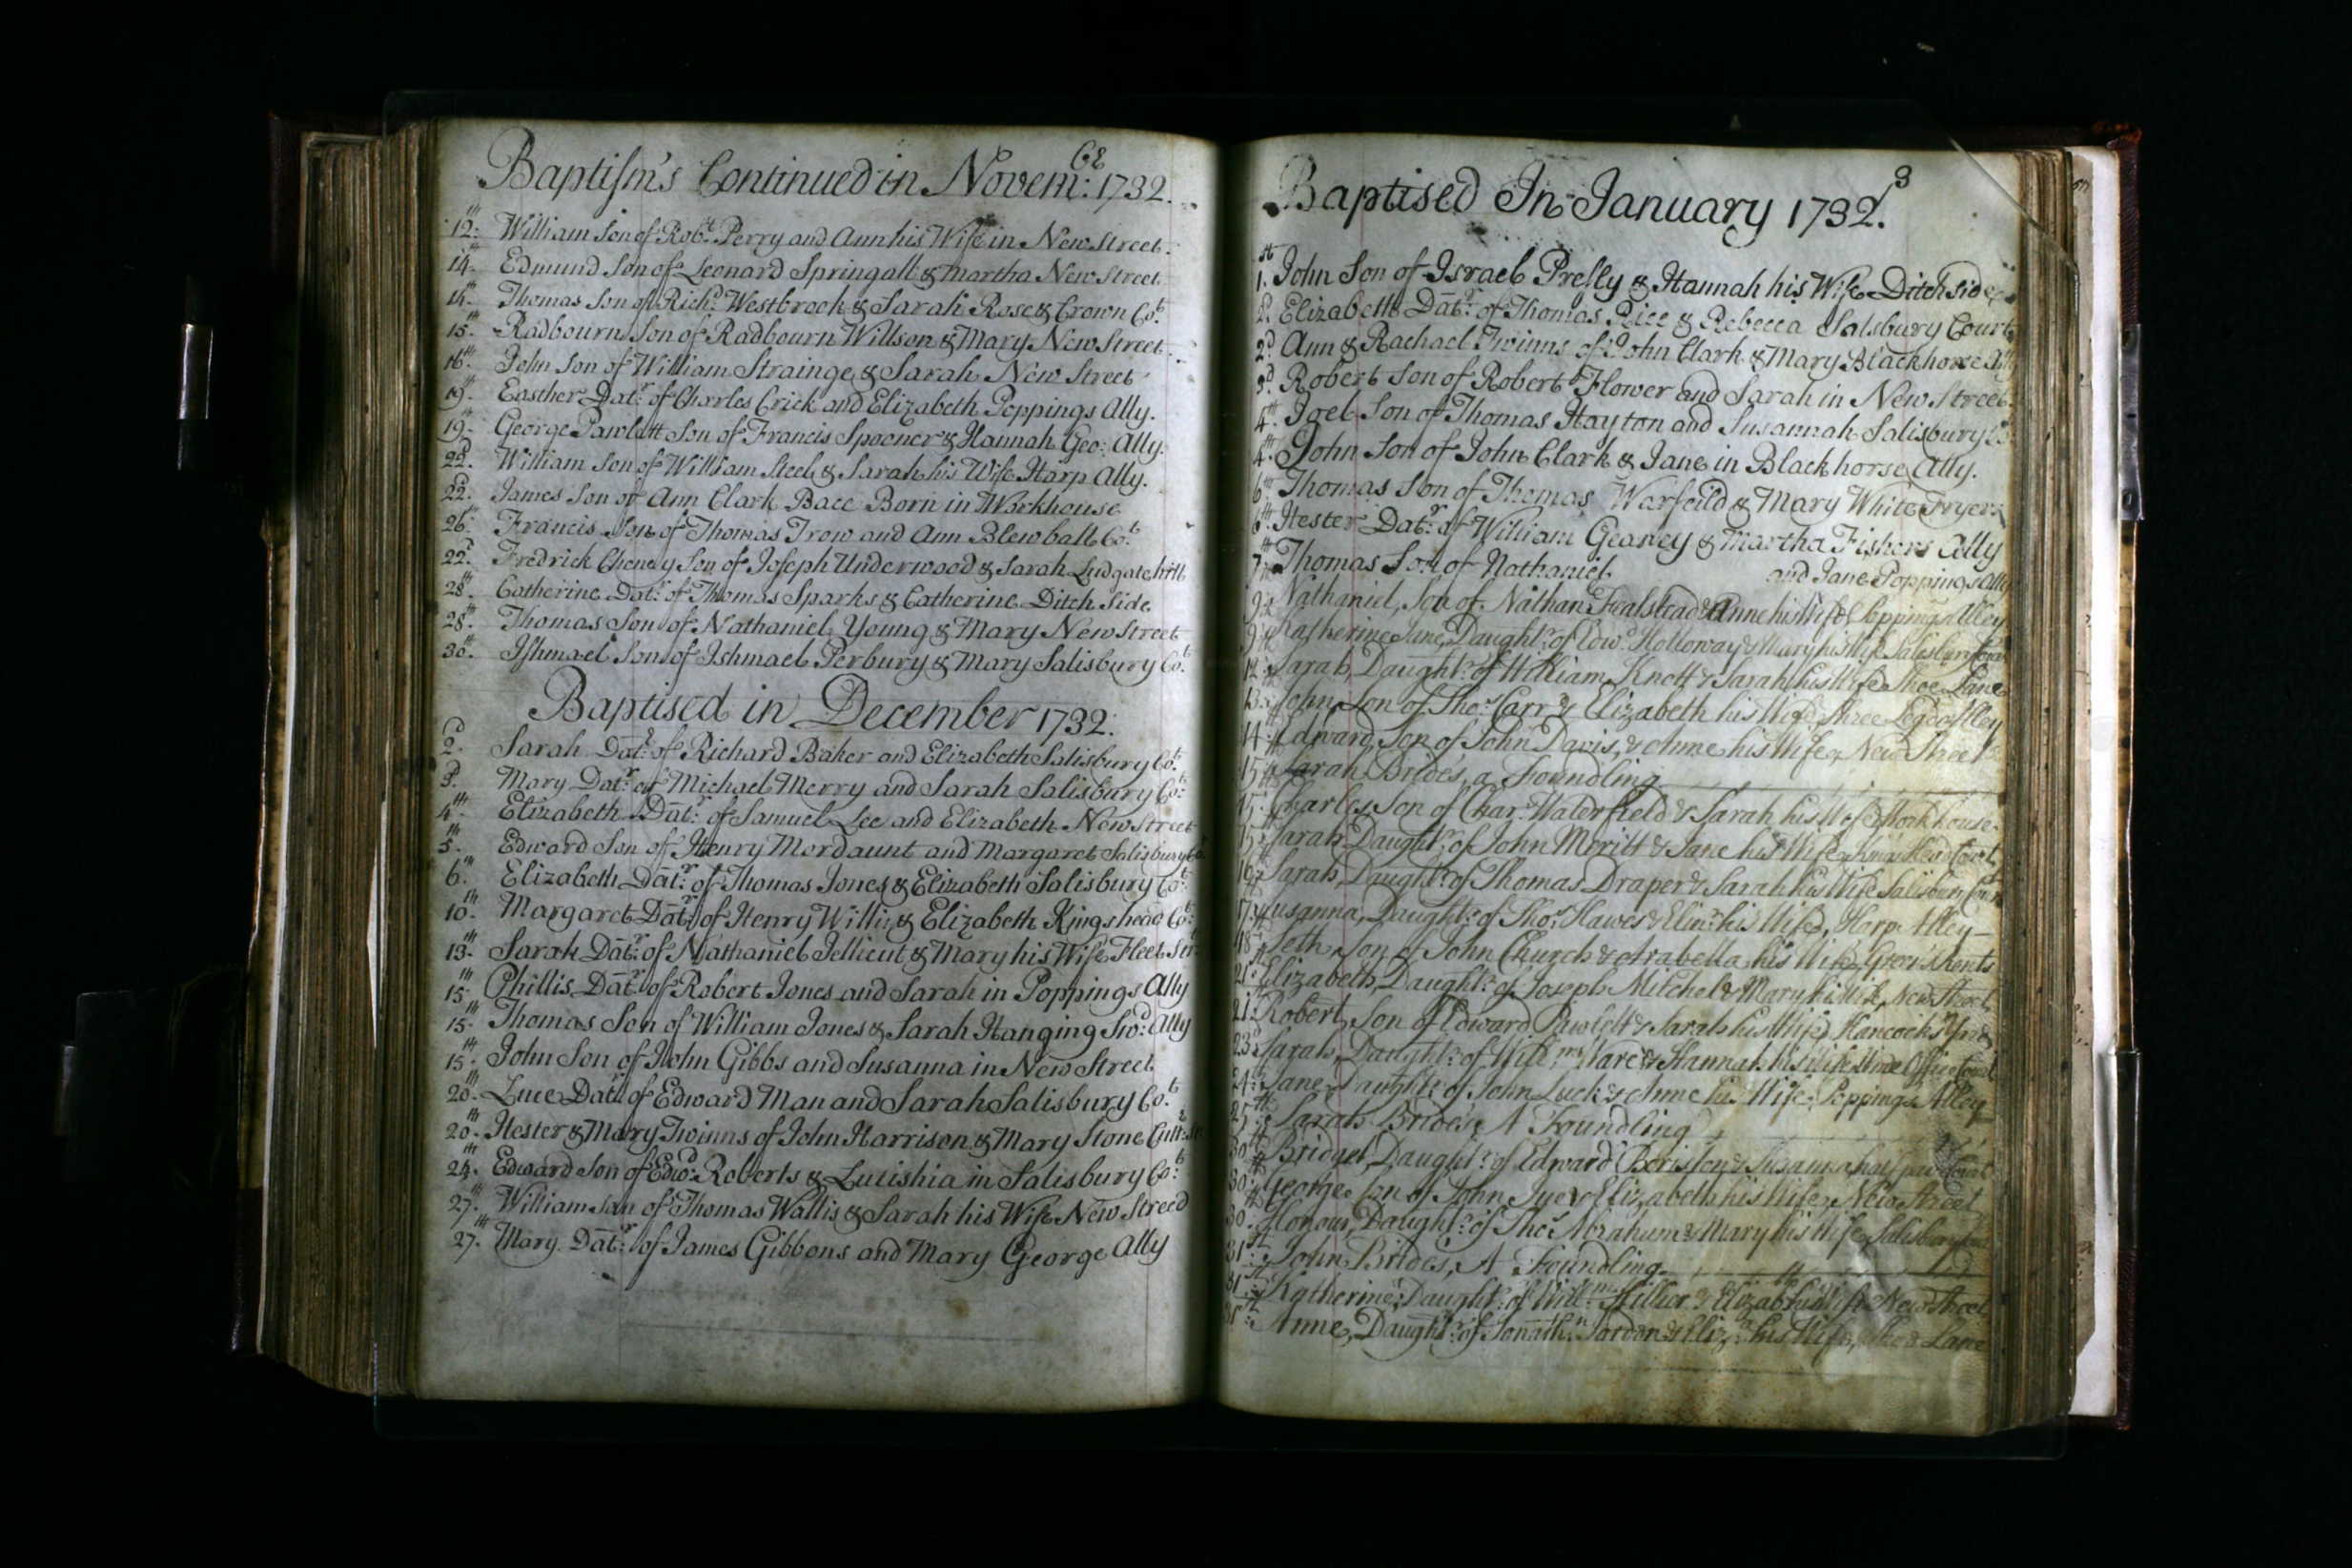 Baptism's Continued in Novem:br 1732.
12th William Son of Robt. Perry and Ann his Wife in New Street.
14th Edmund Son of Leonard Springall & Martha New Street
14th Thomas Son of Richd. Westbrook & Sarah Rose & Crown Cot.
15th Radbourn Son of Radbourn Willson & Mary New Street
16th John Son of William Strainge & Sarah New Street
19th Easther Datr. of Charles Crick and Elizabeth Poppings Ally.
19th George Pawlett Son of Francis Spooner & Hannah Geo: Ally.
22d. William Son of William Steel & Sarah his Wife Harp Ally.
22d. James Son of Ann Clark Bace Born in Workhouse
26th Francis Son of Thomas Trow and Ann Blewball Cot.
22d. Fredrick Cheney Son of Joseph Underwood & Sarah Ludgate hill
28th Catherine Datr. of Thomas Sparks & Catherine Ditch Side
28th Thomas Son of Nathaniel Young & Mary New Street
30th Ishmael Son of Ishmael Perbury & Mary Salisbury Cot.
Baptised in December 1732.
2d. Sarah Datr. of Richard Baker and Elizabeth Salisbury Cot.
3d. Mary Datr. of Michael Merry and Sarah Salisbury Cot.
4th Elizabeth Datr. of Samuel Lee and Elizabeth New Street
5th Edward Son of Henry Mordaunt and Margaret Salisbury Cot.
6th Elizabeth Datr. of Thomas Jones & Elizabeth Salisbury Cot.
10th Margaret Datr. of Henry Willis & Elizabeth Kingshead Cot.
13th Sarah Datr. of Nathaniel Jellicut & Mary his Wife Fleet Str
15th Phillis Datr. of Robert Jones and Sarah in Poppings Ally
15th Thomas Son of William Jones & Sarah Hanging Swd. Ally
15th John Son of John Gibbs and Susanna in New Street
20th Luce Datr. of Edward Man and Sarah Salisbury Cot.
20th Hester & Mary Twinns of John Harrison & Mary Stone Cutt:
24th Edward Son of Edwd. Roberts & Lutishia in Salisbury Cot.
27th William Son of Thomas Wallis & Sarah his Wife New Streed
27th Mary Datr. of James Gibbons and Mary George Ally
Baptised In January 1732/3
1st. John Son of Israel Presly & Hannah his Wife Ditch side
2d. Elizabeth Datr. of Thomas Rice & Rebecca Salsbury Court
2d. Ann & Rachael Twinns of John Clark & Mary Blackhorse Ally
3d. Robert Son of Robert Flower and Sarah in New Street
4th Joel Son of Thomas Hayton and Susannah Salisbury Co
4th John Son of John Clark & Jane in Blackhorse Ally.
6th Thomas Son of Thomas Warfeild & Mary White Fryers
6th Hester Datr. of William Geaney & Martha Fishers Ally
7th Thomas Son of Nathaniel and Jane Poppings Ally
9th Nathaniel, Son of Nathan & Anne his Wife Poppings Alley
9th Katherine Jane, Daughtr. of Edwd. Holloway & Mary his Wife Salisbury Court
12th Sarah, Daughtr. of William Knott & Sarah his Wife Shoe Lane
13th John Son of Thos. Carr & Elizabeth his Wife, three Legg Alley
14th Edward, Son of John Davis, & Anne his Wife, New Street
15th Sarah Bride's, a Foundling
15th Charles Son of Char: Waterfield & Sarah his Wife Workhouse
15th Sarah Daughtr. of John Meritt & Jane his Wife Court
16th Sarah, Daughtr. of Thomas Draper & Sarah his Wife Salisbury Court
17th Susanna, Daughtr. of Thos. Hawes & Elinr. his Wife, Harp Alley
18th Seth, Son of John Church & Arabella his Wife, Rents
21st Elizabeth, Daughtr. of Joseph Mitchel & Mary his Wife, New Street
21st Robert, Son of Edward Pawlett & Sarah his Wife, Hancock's Yard
23d Sarah, Daughtr. of Willm. Ware & Hannah his Wife Wine Office Court
24th Jane Daughtr. of John Luck & Anne his Wife, Poppings Alley
25th Sarah Bride's, A Foundling
30th Bridget, Daughtr. of Edward & Susanna Court
30th George Son of John & Elizabeth his Wife, New Street
30th Honour, Daughtr. of Thos. Abraham & Mary his Wife Salisbury Court
31st John Bride's, A Foundling
31st Katherine, Daughtr. of Willm. Hillier & Elizabth. his Wife New Street
31st Anne, Daughtr. of Jonathn. Jordon & Elizth. his Wife, Shoe Lane